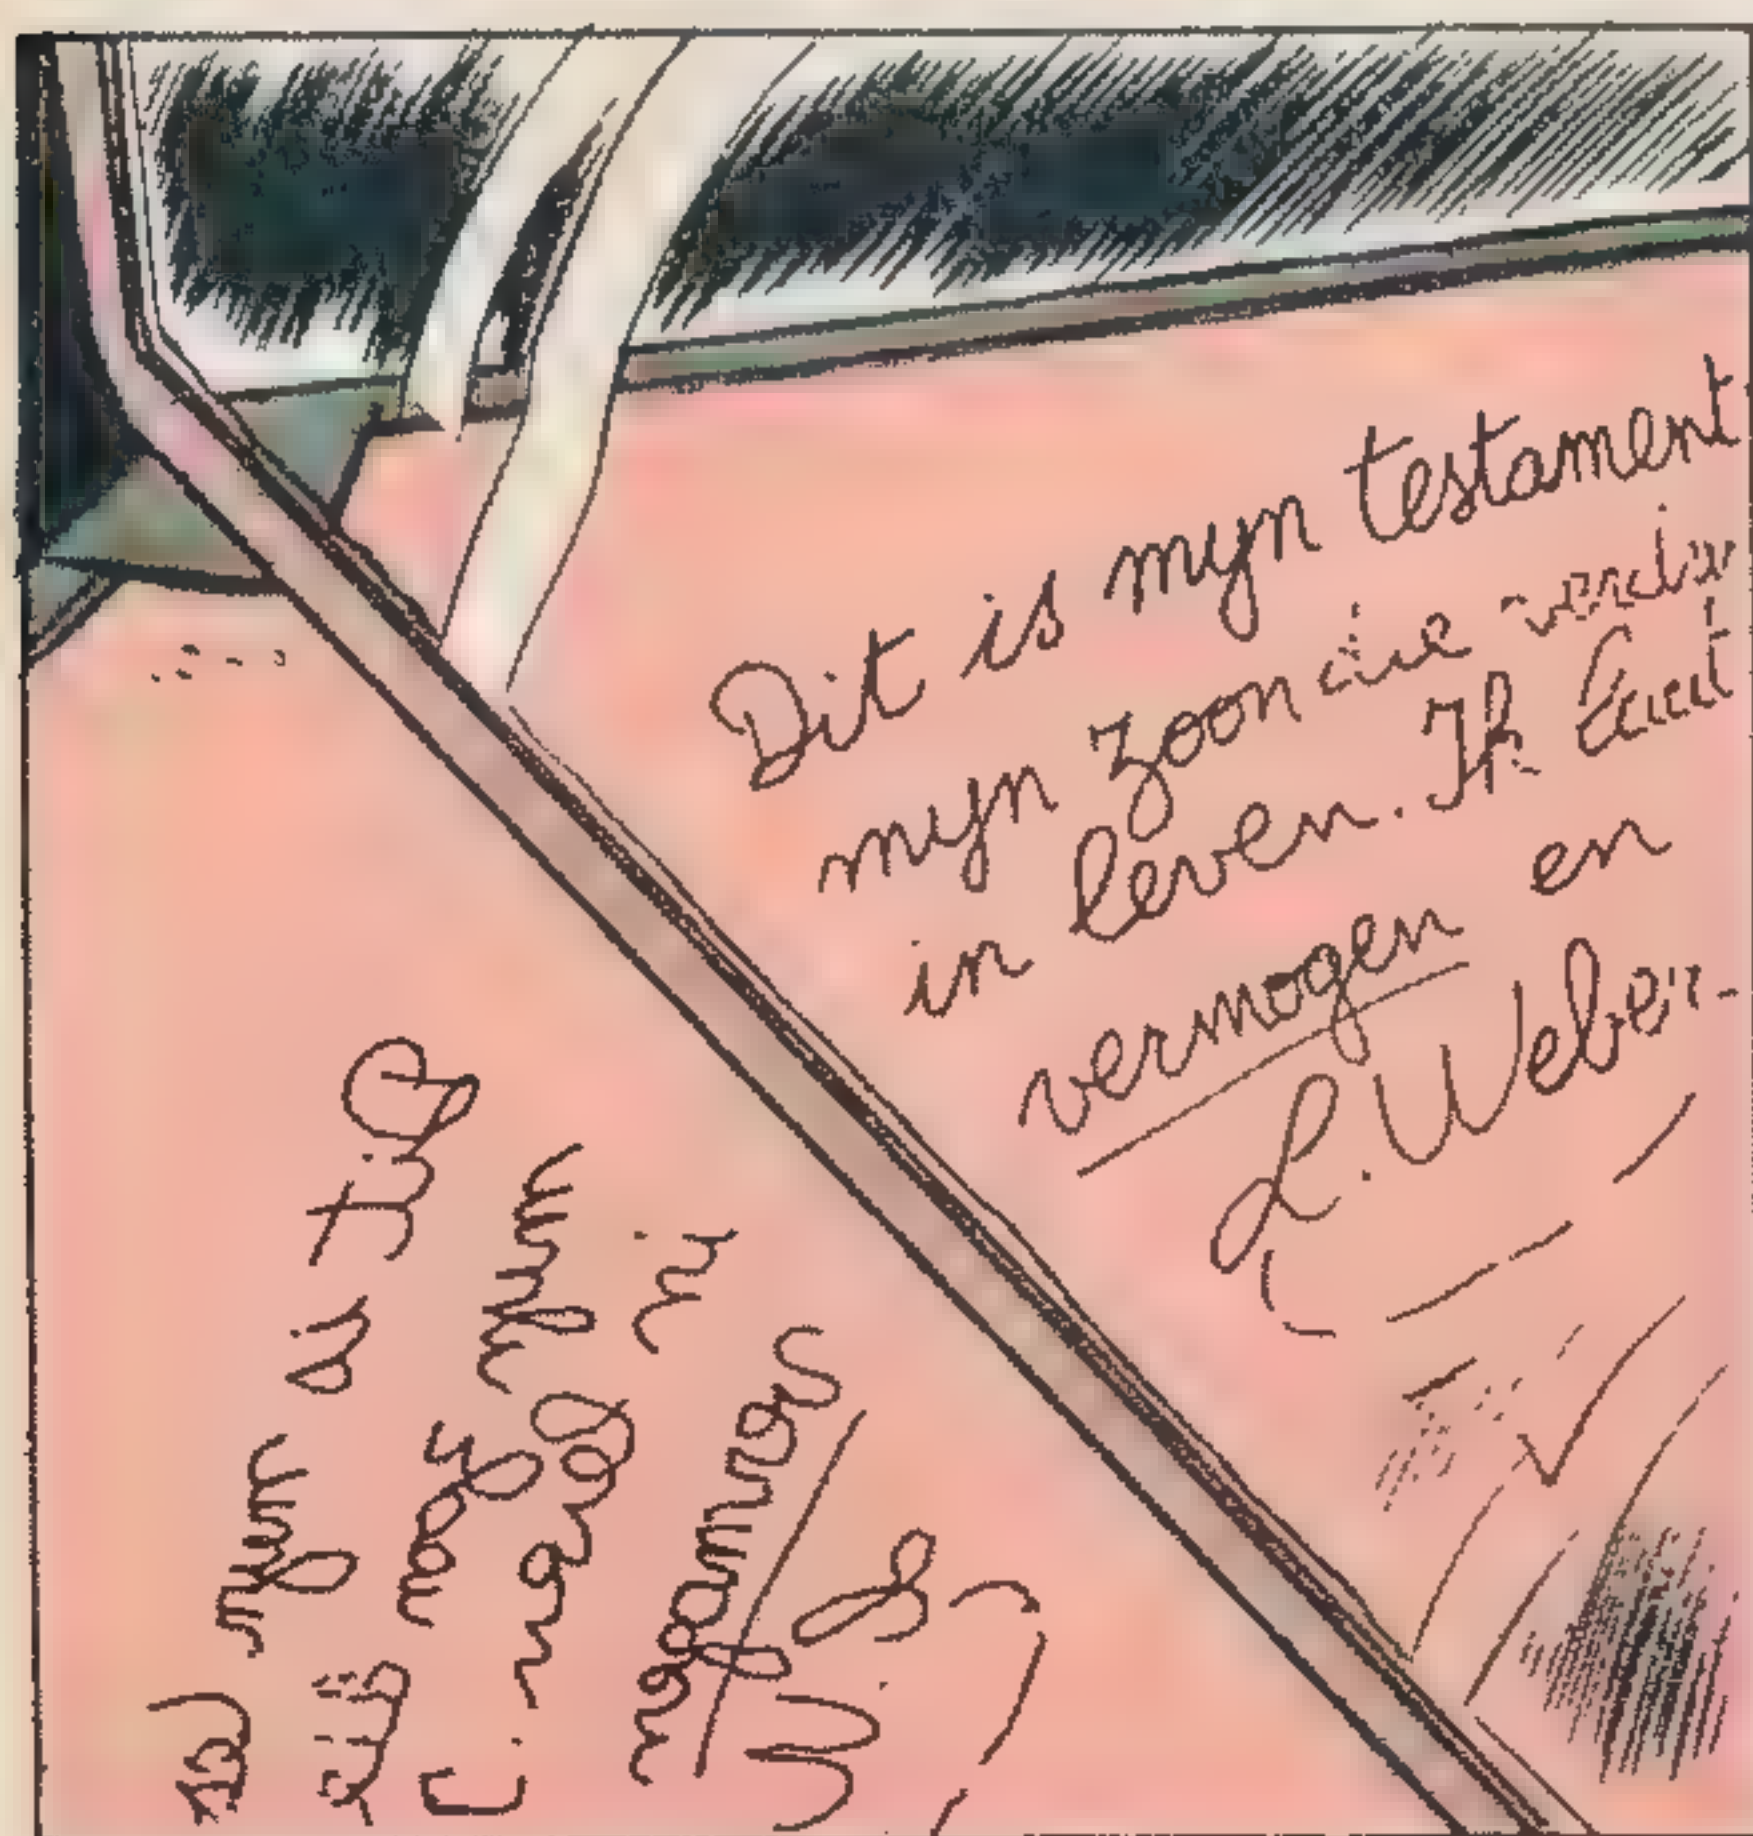 Dit is myn testament
myn zoon die
in leven. Ik
vermogen en
L. Weber
Dit is myn
myn zoon
in leven.
vermogen
L. W